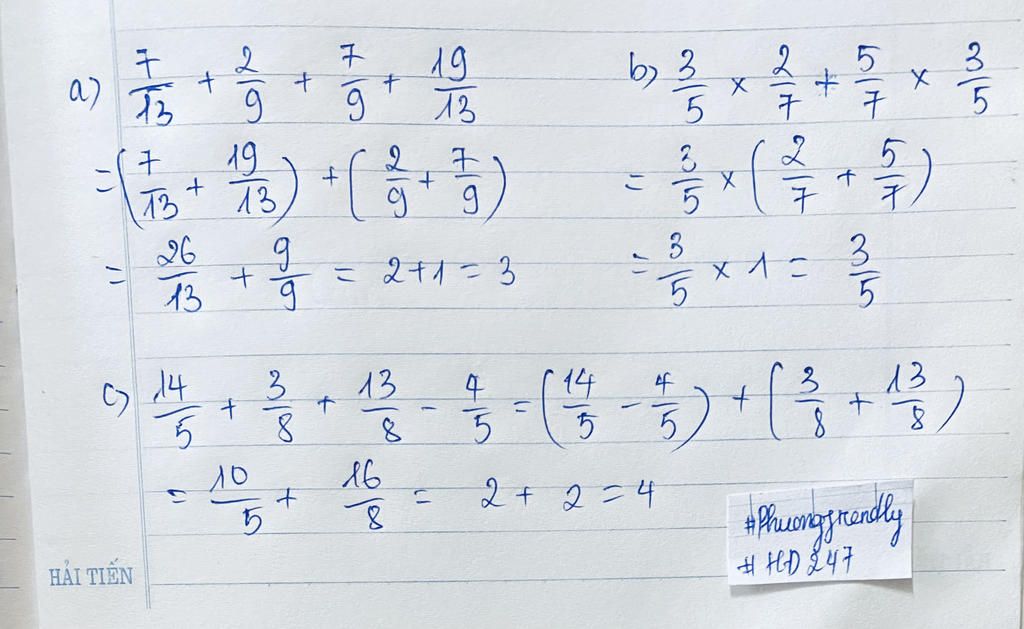 a) 7/13 + 2/9 + 7/9 + 19/13
= (7/13 + 19/13) + (2/9 + 7/9)
= 26/13 + 9/9 = 2+1 = 3
b) 3/5 × 2/7 + 5/7 × 3/5
= 3/5 × (2/7 + 5/7)
= 3/5 × 1 = 3/5
c) 14/5 + 3/8 + 13/8 - 4/5 = (14/5 - 4/5) + (3/8 + 13/8)
= 10/5 + 16/8 = 2 + 2 = 4
#Phuongfrendly
#HD247
HẢI TIẾN